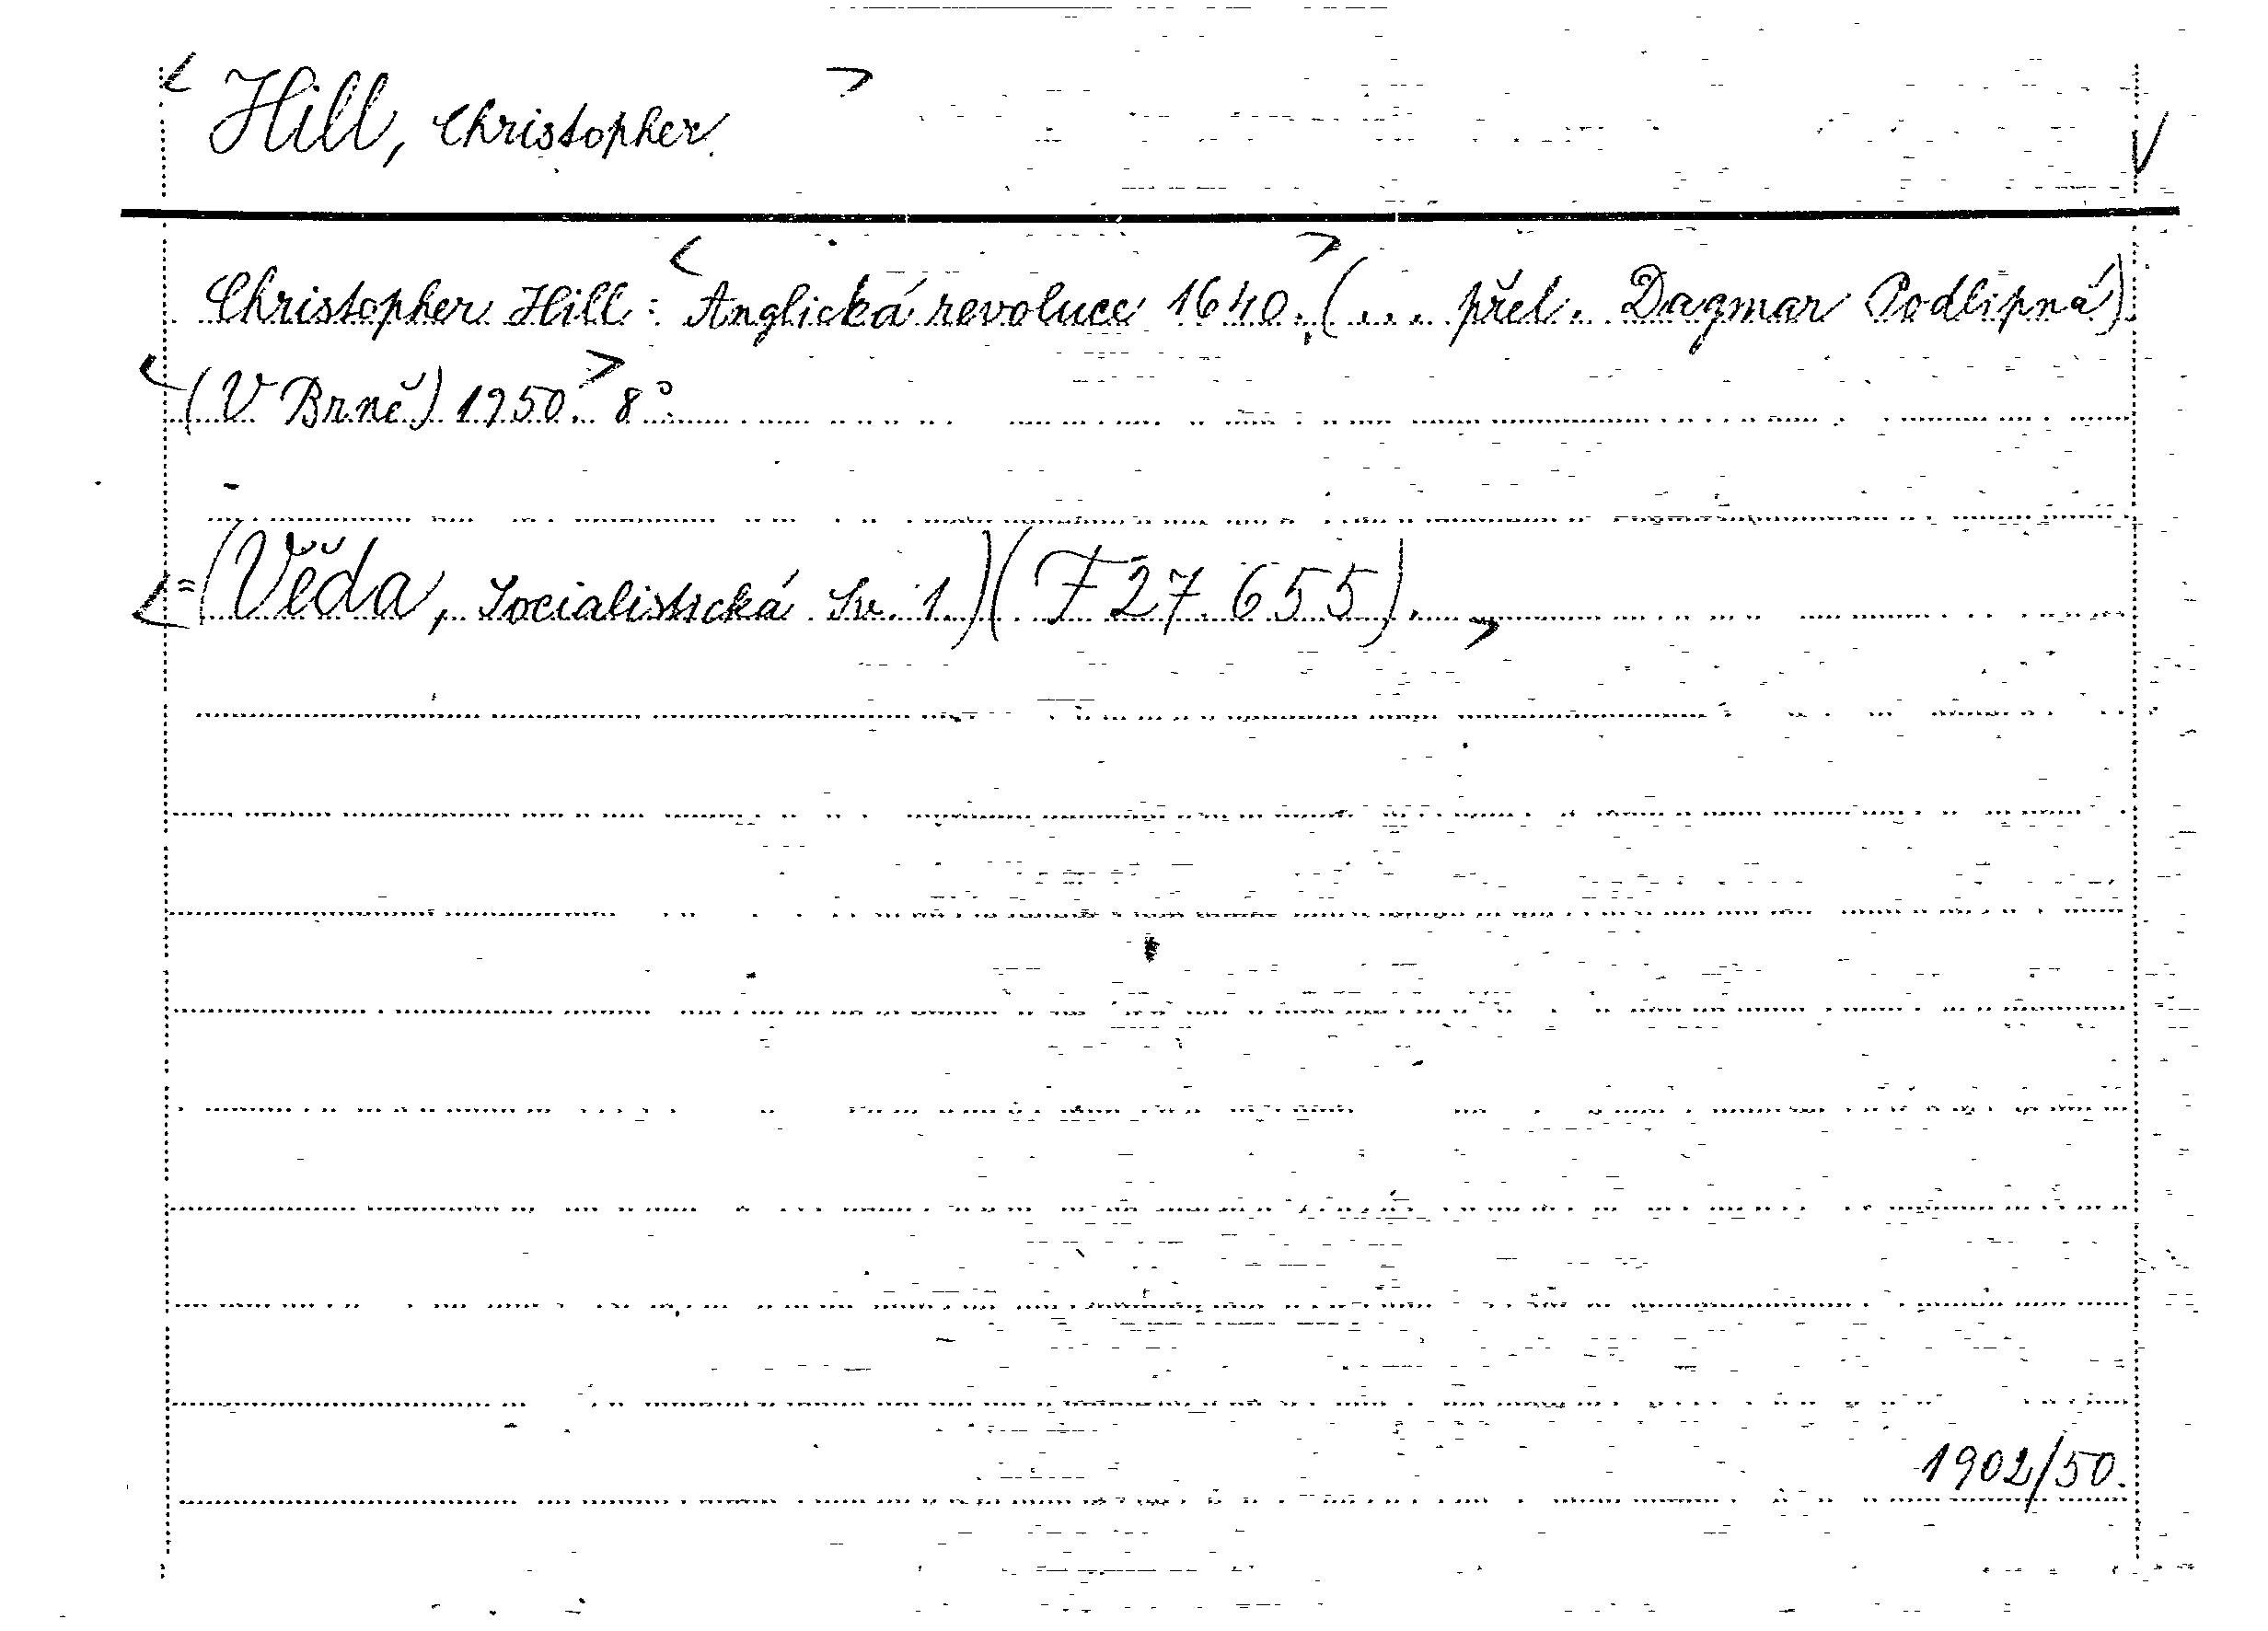 < Hill, Christopher >
V
Christopher Hill: < Anglická revoluce 1640. > (... přel. Dagmar Podlipná)
< (V Brně) 1950. > 8°.
< = (Věda, socialistická Sv. 1.) (F 27.655). >
1902/50.